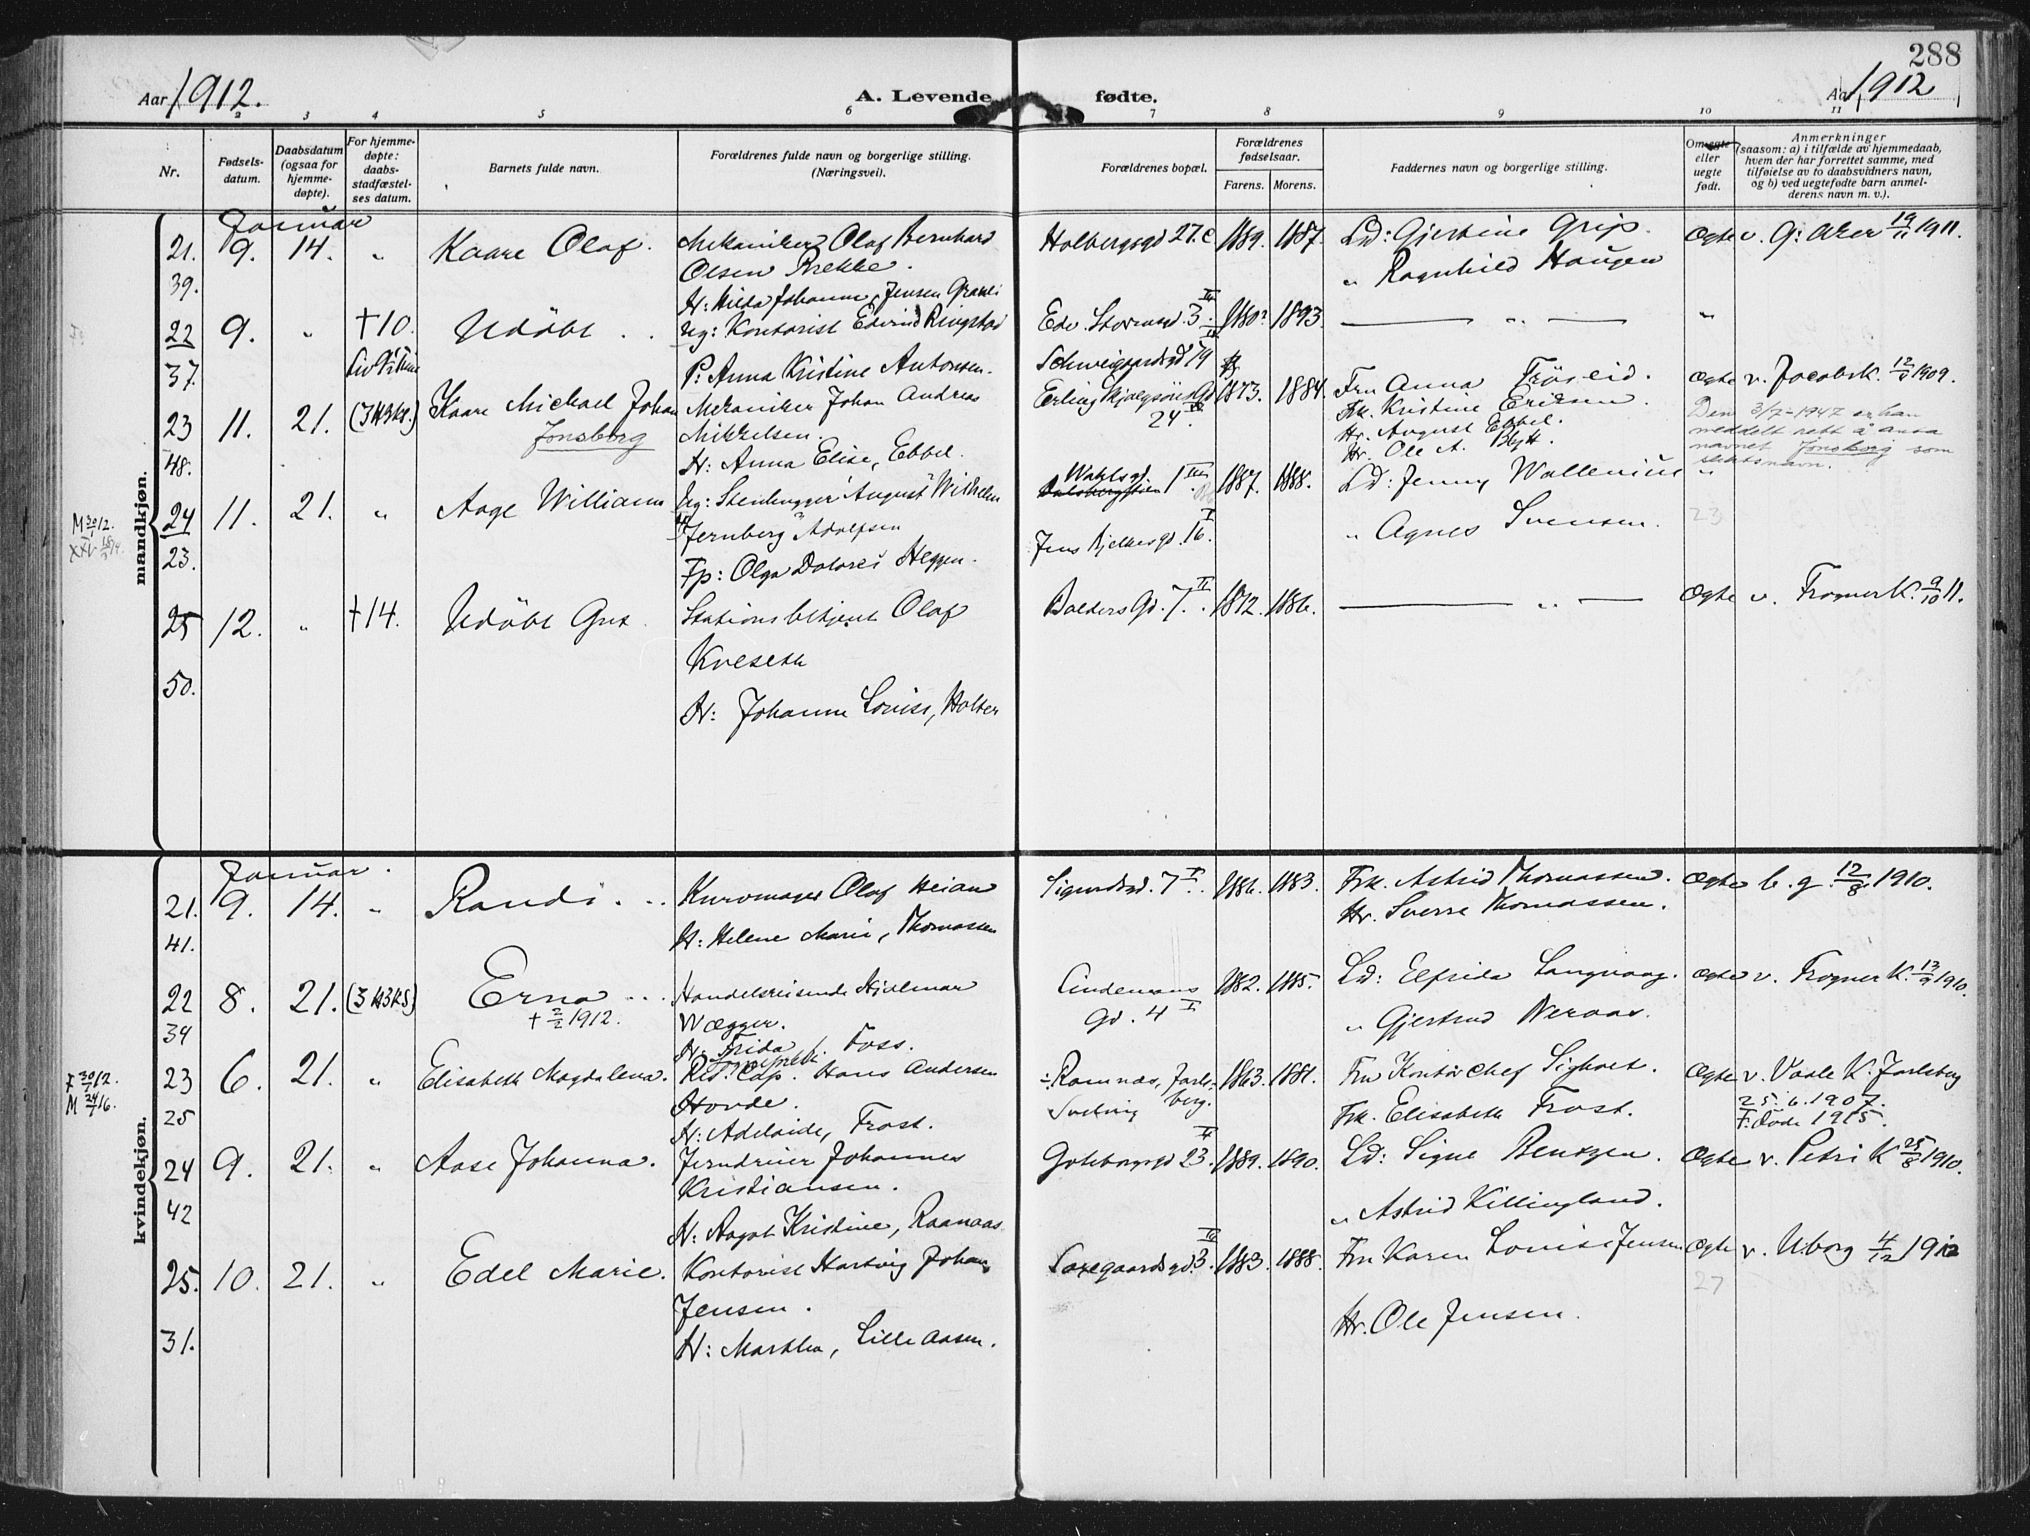 288
Aar 1912.
A. Levende
fødte.
Aar 1912
2 3 4 5 6 7 8 9 10 11
Nr.
Fødsels-
datum.
Daabsdatum
(ogsaa for
hjemme-
døpte).
For hjemme-
døpte:
daabs-
stadfæstel-
ses datum.
Barnets fulde navn.
Forældrenes fulde navn og borgerlige stilling.
(Næringsvei).
Forældrenes bopæl.
Forældrenes
fødselsaar.
Farens. Morens.
Faddernes navn og borgerlige stilling.
eller
uegte
født.
Anmerkninger
(saasom: a) i tilfælde av hjemmedaab,
hvem der har forrettet samme, med
tilføielse av to daabsvidners navn,
og b) ved uegtefødte barn anmel-
derens navn m. v.).
mandkjøn.
Januar
21. 9. 14. " Kaare Olaf. Mekaniker Olaf Bernhard
Olsen Brekke.
39.
H: Hilda Johanne, Jensen
Holbergsgd 27. c 1889. 1887. Ld: Gjertine Grip.
" Ragnhild Haugen
Ogte v. G: Aker 19/11 1911.
22 9. " †10. Udöbt . . Ug: Kontorist Edvind Ringstad
37. P: Anna Kristine Antonsen.
Edv. Stormsgd. 3. 1893. " "
Schweigaardsgd 79
23 11. 21. (3 H3KS.) Kaare Michael Johan
Jonsborg
Mekaniker Johan Andreas
Mikkelsen.
48. H: Anna Elise, Ebbel.
24 1873. 1884. Fru Anna
Frk. Kristine Eriksen.
Hr. August Ebbel.
Hr. Ole A.
Ogte v. Jacobsk. 1909.
Den 3/7-1947 er han
meddelt rett å anta
navnet Jonsborg som
slektsnavn.
24 11. 21. " Aage William Ug: Stenhugger August Wilhelm
Jernberg Adolfsen
23. Fp: Olga Dolores Heggen.
Jens Bjelkesgd. 16. 1887. 1888. Ld: Jenny Wallenius "
" Agnes Svensen. 23
25 12. " †14. Udöbt Gut. Stationsbetjent Olaf
Kveseth
50. H: Johanne Louise, Holter
Balders Gd. 7. 1872. 1886. "
Ogte v. Frogner K. 9/10 11.
kvindekjøn.
Januar.
21. 9. 14. " Randi. .. Kurvmager Olaf Heian
41. H: Helene Marie, Thomassen
Sigurdsgd. 7 1886. 1883. Frk. Astrid Thomassen.
Hr. Sverre Thomassen.
Ogte b. g. 12/8 1910.
22 8. 21. (3 H3KS) Erna ... Handelsreisende Hjalmar
† 2/2 1912. Wægger.
34 H: Frida, Foss.
Lindemans
Gd. 4 1882. 1885. Ld: Elfrida Langvaag.
" Gjertrud Neraas.
Ogte v. Frogner K. 1910.
23 6. 21. " Elisabeth Magdalena. Hans Andersen
Hovde.
25 H: Adelaide, Frost.
÷Ramnæs, Jarls-
berg.
Svelvig
1863. 1881. Fru Kontorchef Sigholt.
Frk. Elisabeth Frost.
Ogte v. Vaale K. Jarlsberg
25. 6. 1907.
F: död 1915.
24 9. 21. " Aase Johanna. Jerndreier Johannes
Kristiansen.
42 H: Aagot Kristine, Raanaas
Goteborgsgd 23. 1889. 1890. Ld: Signe Bentzen.
" Astrid Killingland.
Ogte v. Petri K 25/8 1910.
25. 10. 21. " Edel Marie. Kontorist Hartvig Johan
Jensen.
31. H: Martha, Lille Aasen.
Saxegaardsgd. 3. 1883. 1888. Fru Karen Louise Jensen
Hr. Ole Jensen.
Ogte v. Uborg 4/12
27